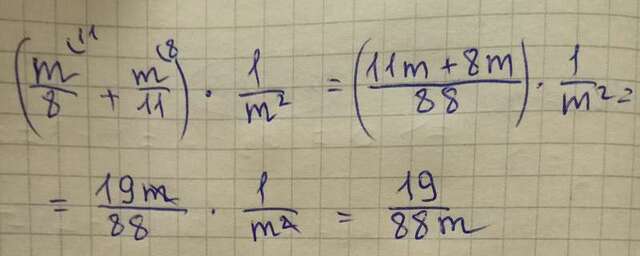 (m/8 \11 + m/11 \8) · 1/m² = (11m + 8m / 88) · 1/m² =
= 19m/88 · 1/m² = 19/88m